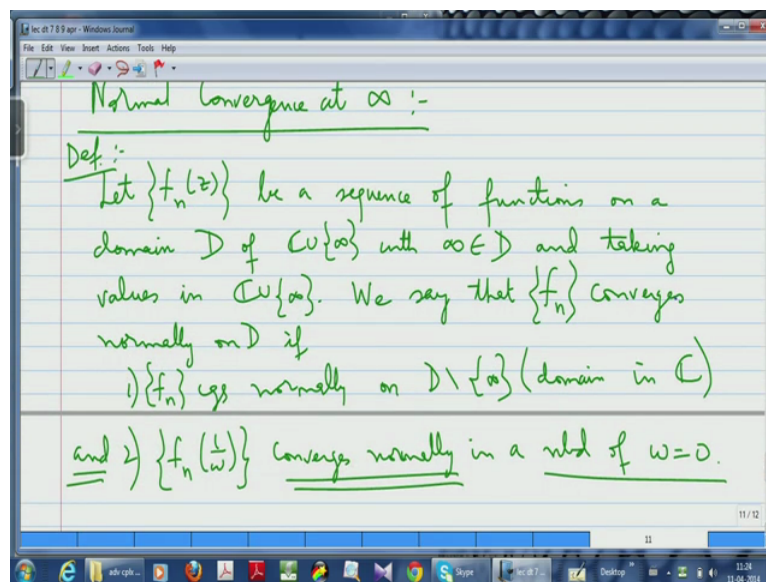 lec dt 7 8 9 apr - Windows Journal
File Edit View Insert Actions Tools Help
Normal Convergence at ∞ :-
Def. :-
Let {f_n(z)} be a sequence of functions on a
domain D of ℂ∪{∞} with ∞∈D and taking
values in ℂ∪{∞}. We say that {f_n} converges
normally on D if
1) {f_n} cgs normally on D\{∞} (domain in ℂ)
and 2) {f_n(1/w)} converges normally in a nbd of w=0.
11 / 12
11
adv cplx ...
Skype
lec dt 7...
Desktop
11:24
11-04-2014